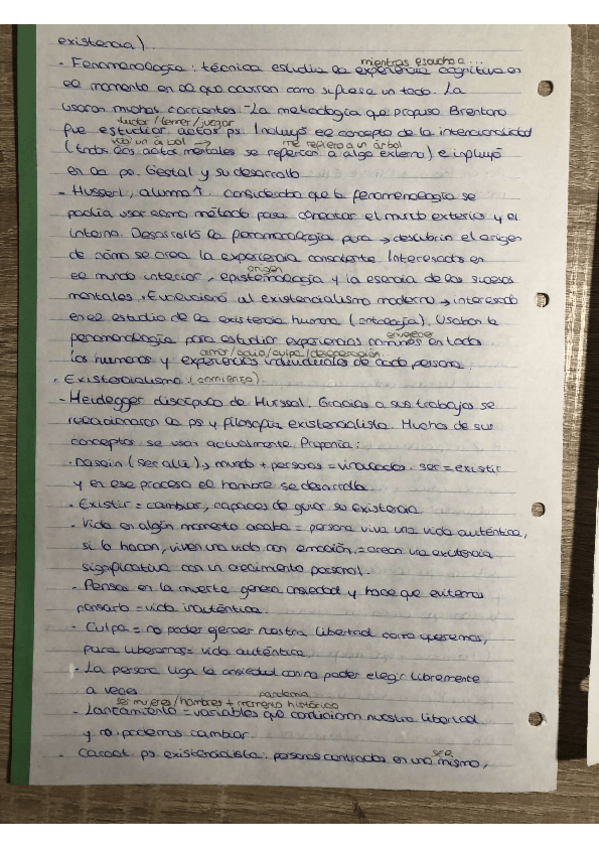 existencia).
- Fenomenología: técnica estudia la experiencia cognitiva en
mientras escucho a...
el momento en el que ocurren como si fuese un todo. La
usaron muchas corrientes - La metodología que propuso Brentano
dudar/temer/juzgar
fue estudiar actos ps. Incluyó el concepto de la intencionalidad
veo un árbol → me refiero a un árbol
(todos los actos mentales se refieren a algo externo) e influyó
en la ps. Gestal y su desarrollo
- Husserl, alumno ↑. consideraba que la fenomenología se
podía usar como método para conectar el mundo exterior y el
interno. Desarrolló la fenomenología para → descubrir el origen
de cómo se crea la experiencia consciente. Interesados en
origen
el mundo interior, epistemología y la esencia de los sucesos
mentales. Evolucionó al existencialismo moderno → interesado
en el estudio de la existencia humana (ontología). Usaban la
envejecer
fenomenología para estudiar experiencias comunes en todos
amor/odio/culpa/desesperación.
los humanos y experiencias individuales de cada persona.
- Existencialismo (comienzo).
- Heidegger discípulo de Hurssal. Gracias a sus trabajos se
relacionaron la ps y filosofía existencialista. Muchos de sus
conceptos se usan actualmente. Proponía:
· Dasein (ser allí) → mundo + personas = vinculados. ser = existir
y en ese proceso el hombre se desarrolla.
· Existir = cambiar, capaces de guiar su existencia
- Vida en algún momento acaba = persona viva una vida auténtica,
si lo hacen, viven una vida con emoción = crean una existencia
significativa con un crecimiento personal.
- Pensar en la muerte genera ansiedad y hace que evitemos
pensarlo = vida inauténtica.
- Culpa = no poder ejercer nuestra libertad como queremos,
para liberarnos = vida auténtica.
- La persona liga la ansiedad con no poder elegir libremente
a veces
pandemia
ser mujeres/hombres + momento histórico
- Lanzamiento = variables que condicionan nuestra libertad
y no podemos cambiar.
- Caract. ps. existencialista: personas centradas en uno mismo,